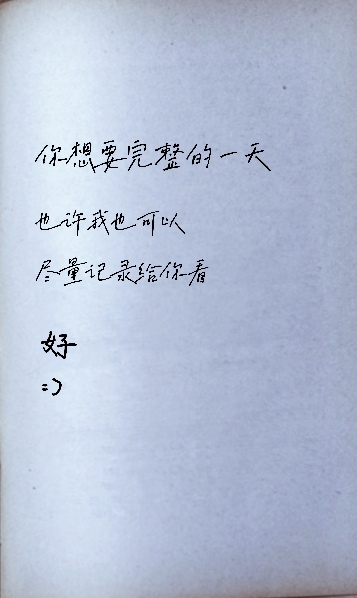 你想要完整的一天
也许我也可以
尽量记录给你看
好
:)